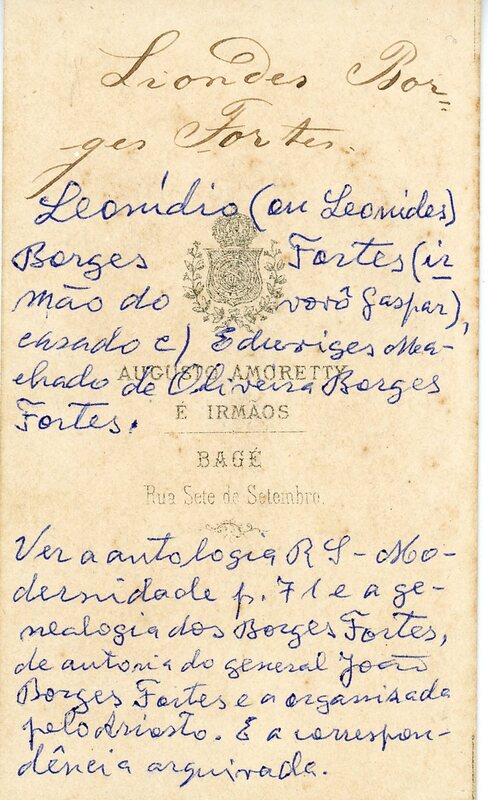 Liondes Bor=
ges Fortes.
Leonídio (ou Leonides)
Borges Fortes (ir-
mão do vovô Gaspar),
casado c) Eduviges Ma-
chado de Oliveira Borges
Fortes.
AUGUSTO AMORETTY
E IRMÃOS
BAGÉ
Rua Sete de Setembro.
Ver a antologia RS - Mo-
dernidade p. 71 e a ge-
nealogia dos Borges Fortes,
de autoria do general João
Borges Fortes e a organizada
pelo Ariosto. E a correspon-
dência arquivada.